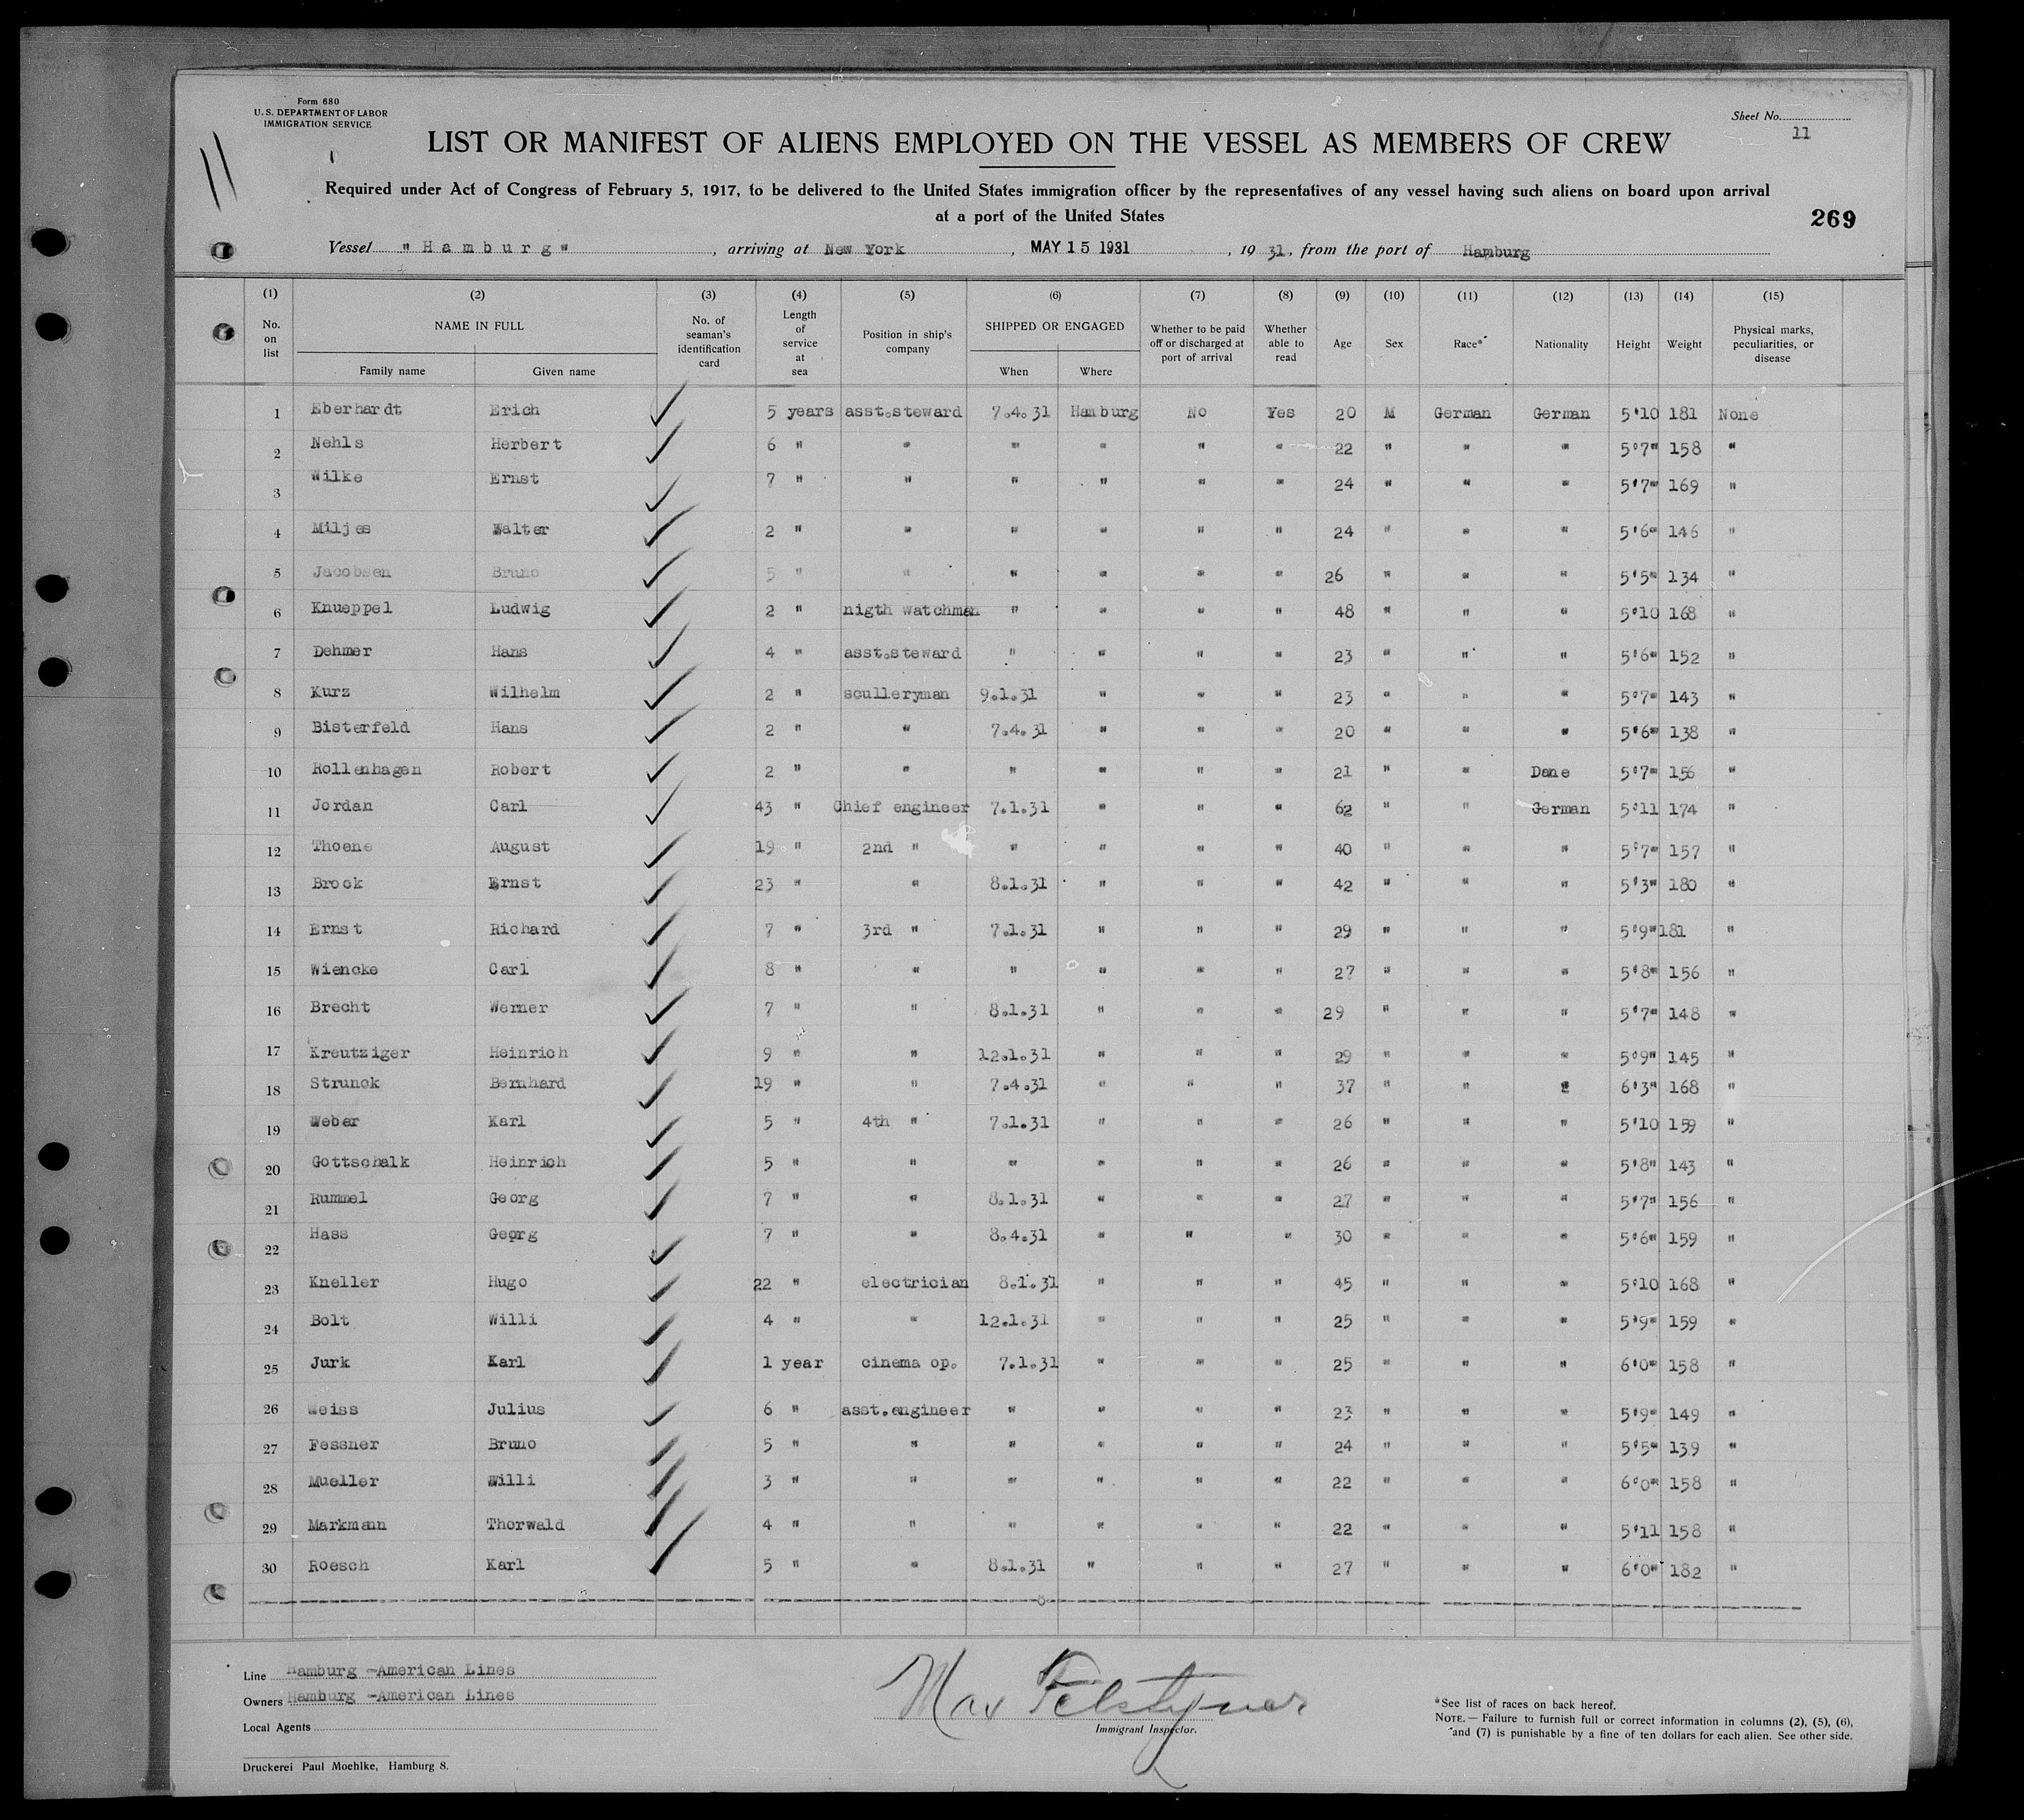 Form 680
U. S. DEPARTMENT OF LABOR
IMMIGRATION SERVICE
Sheet No.
11
LIST OR MANIFEST OF ALIENS EMPLOYED ON THE VESSEL AS MEMBERS OF CREW
Required under Act of Congress of February 5, 1917, to be delivered to the United States immigration officer by the representatives of any vessel having such aliens on board upon arrival
at a port of the United States
269
Vessel "Hamburg", arriving at New York, MAY 15 1931, 19 31, from the port of Hamburg
(1) (2) (3) (4) (5) (6) (7) (8) (9) (10) (11) (12) (13) (14) (15)
No. on list NAME IN FULL Family name Given name No. of seaman's identification card Length of service at sea Position in ship's company SHIPPED OR ENGAGED When Where Whether to be paid off or discharged at port of arrival Whether able to read Age Sex Race* Nationality Height Weight Physical marks, peculiarities, or disease
1 Eberhardt Erich 5 years asst.steward 7.4.31 Hamburg No Yes 20 M German German 5'10 181 None
2 Nehls Herbert 6 " " " " " " 22 " " " 5'7" 158 "
3 Wilke Ernst 7 " " " " " " 24 " " " 5'7" 169 "
4 Miljes Walter 2 " " " " " " 24 " " " 5'6" 146 "
5 Jacobsen Bruno 5 " " " " " " 26 " " " 5'5" 134 "
6 Knueppel Ludwig 2 " nigth watchman " " " " 48 " " " 5'10 168 "
7 Dehmer Hans 4 " asst.steward " " " " 23 " " " 5'6" 152 "
8 Kurz Wilhelm 2 " sculleryman 9.1.31 " " " 23 " " " 5'7" 143 "
9 Bisterfeld Hans 2 " " 7.4.31 " " " 20 " " " 5'6" 138 "
10 Rollenhagen Robert 2 " " " " " " 21 " " Dane 5'7" 156 "
11 Jordan Carl 43 " Chief engineer 7.1.31 " " " 62 " " German 5'11 174 "
12 Thoene August 19 " 2nd " " " " " 40 " " " 5'7" 157 "
13 Brock Ernst 23 " " 8.1.31 " " " 42 " " " 5'3" 180 "
14 Ernst Richard 7 " 3rd " 7.1.31 " " " 29 " " " 5'9" 181 "
15 Wiencke Carl 8 " " " " " " 27 " " " 5'8" 156 "
16 Brecht Werner 7 " " 8.1.31 " " " 29 " " " 5'7" 148 "
17 Kreutziger Heinrich 9 " " 12.1.31 " " " 29 " " " 5'9" 145 "
18 Strunck Bernhard 19 " " 7.4.31 " " " 37 " " " 6'3" 168 "
19 Weber Karl 5 " 4th " 7.1.31 " " " 26 " " " 5'10 159 "
20 Gottschalk Heinrich 5 " " " " " " 26 " " " 5'8" 143 "
21 Rummel Georg 7 " " 8.1.31 " " " 27 " " " 5'7" 156 "
22 Hass Georg 7 " " 8.4.31 " " " 30 " " " 5'6" 159 "
23 Kneller Hugo 22 " electrician 8.1.31 " " " 45 " " " 5'10 168 "
24 Bolt Willi 4 " " 12.1.31 " " " 25 " " " 5'9" 159 "
25 Jurk Karl 1 year cinema op. 7.1.31 " " " 25 " " " 6'0" 158 "
26 Weiss Julius 6 " asst.engineer " " " " 23 " " " 5'9" 149 "
27 Fessner Bruno 5 " " " " " " 24 " " " 5'5" 139 "
28 Mueller Willi 3 " " " " " " 22 " " " 6'0" 158 "
29 Markmann Thorwald 4 " " " " " " 22 " " " 5'11 158 "
30 Roesch Karl 5 " " 8.1.31 " " " 27 " " " 6'0" 182 "
Line Hamburg -American Lines
Owners Hamburg -American Lines
Local Agents
Max
Immigrant Inspector.
*See list of races on back hereof.
NOTE.— Failure to furnish full or correct information in columns (2), (5), (6),
and (7) is punishable by a fine of ten dollars for each alien. See other side.
Druckerei Paul Moehlke, Hamburg 8.